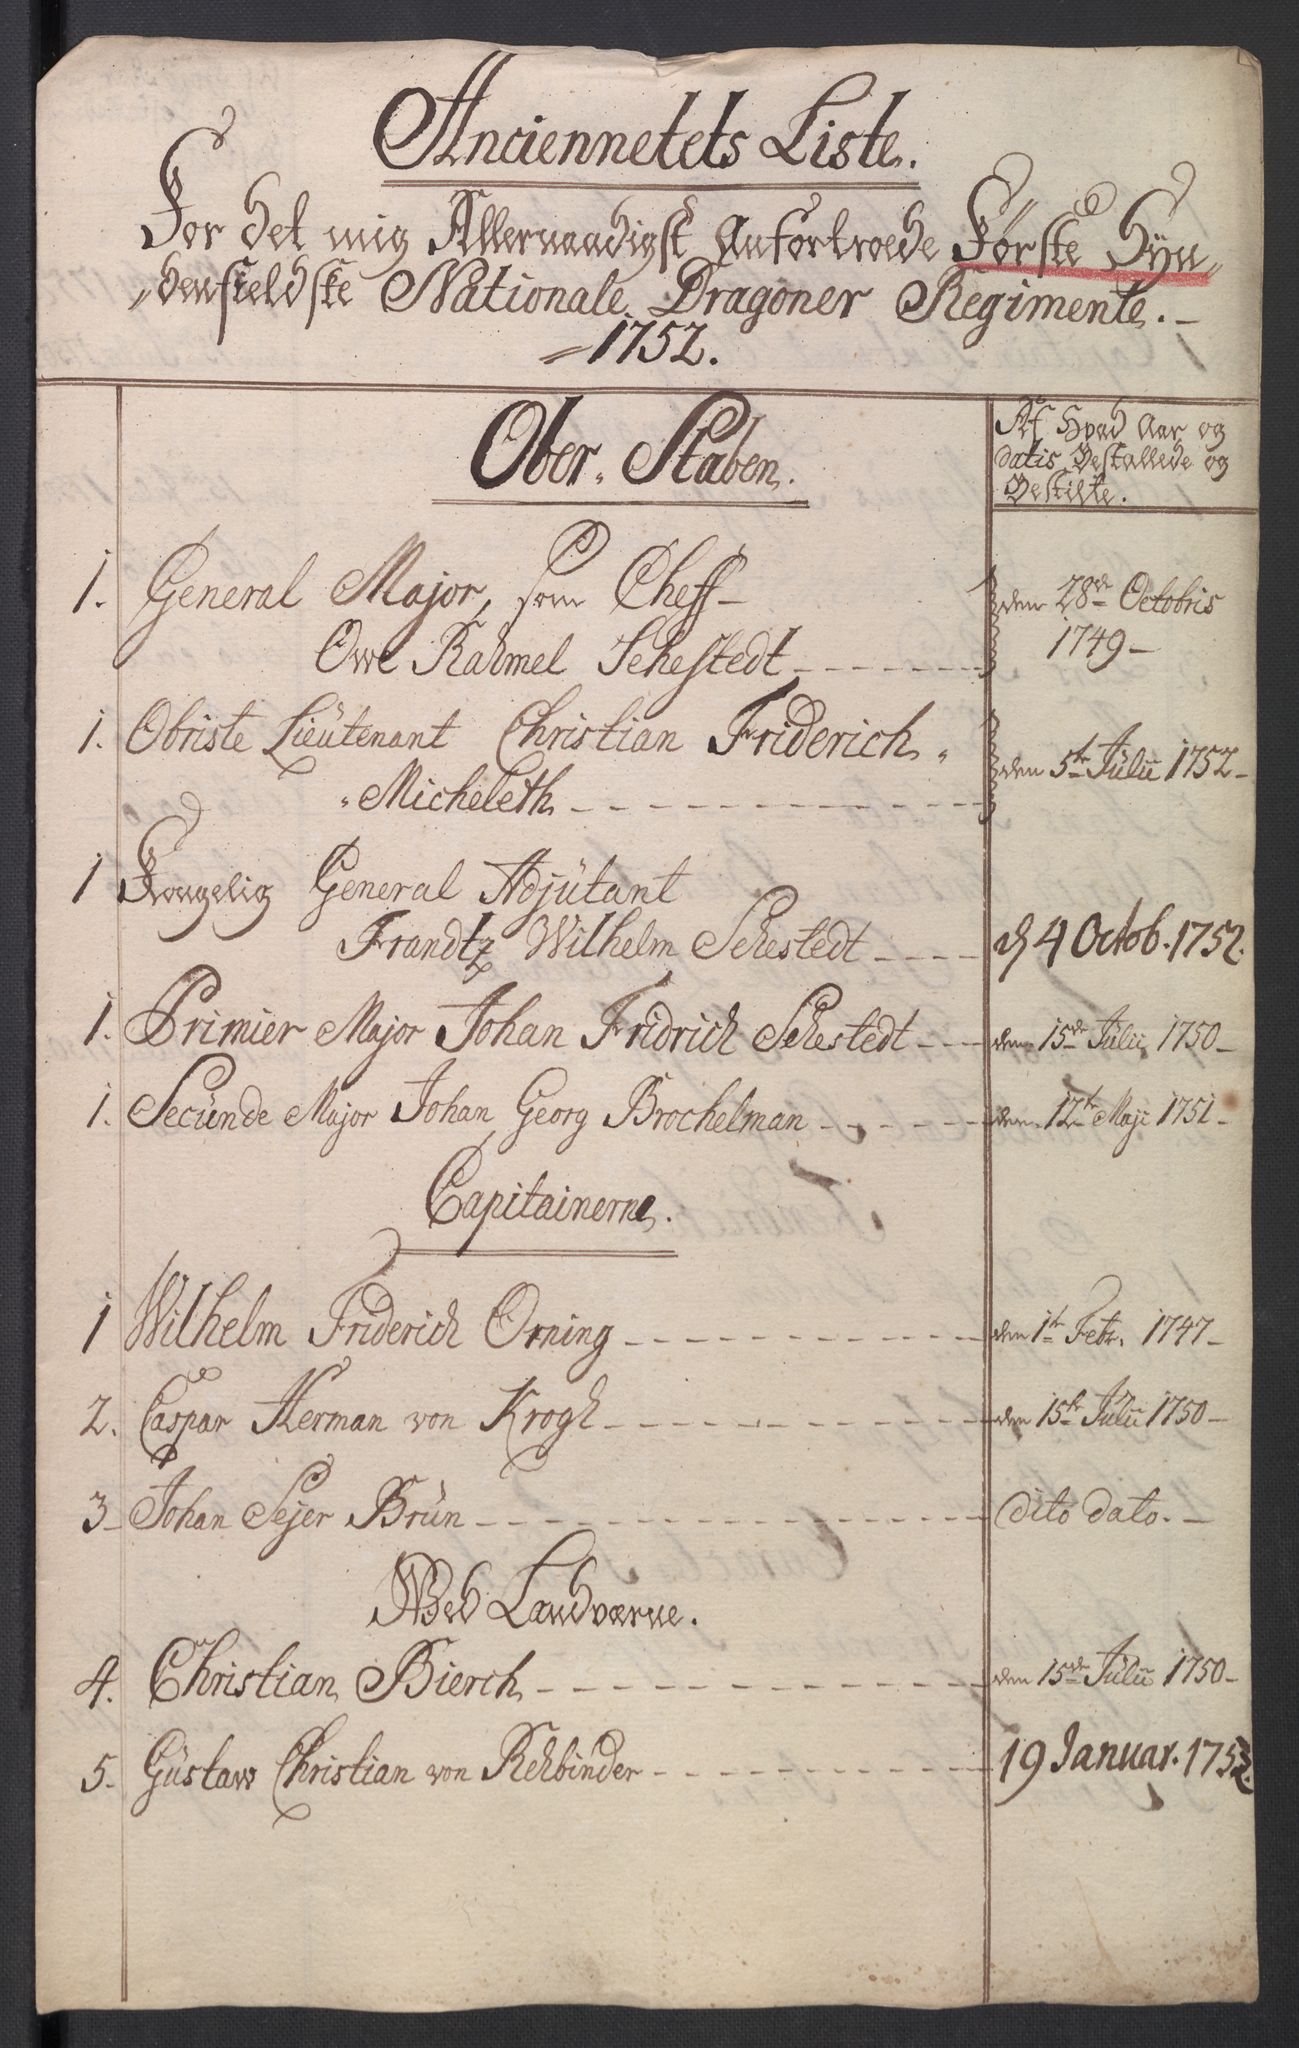 Anciennetets Liste.
For det mig Allernaadigst Anfortroede Første Syn„
„denfieldske Nationale Dragoner Regimente.
1752.
Ober Staben.
Af Hvad Aar og
datis Bestallede og
Bestilte.
1. General Major, som Cheff
Owe Rahmel Sehestedt
den 28de Octobris
1749
1. Obriste Lieütenant Christian Friderich
Micheleth
den 5te Jülii 1752
1 Kongelig General Adjütant
Frandtz Wilhelm Sehestedt
d 4 Octob. 1752.
1. Primier Major Johan Fridrich Sehestedt den 15de Jülii 1750
1. Secünde Major Johan Georg Brochelman den 12te Maji 1751
Capitainerne.
1 Wilhelm Friderich Orning den 1te Febr. 1747
2. Caspar Herman von Krogh den 15te Jülii 1750
3 Johan Sejer Brün dito dato.
Wed Landværne.
4. Christian Bierch den 15de Jülii 1750
5. Güstaw Christian von Rehbinder 19 Januar.